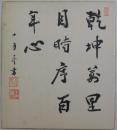 乾坤萬里
目時序百
年心